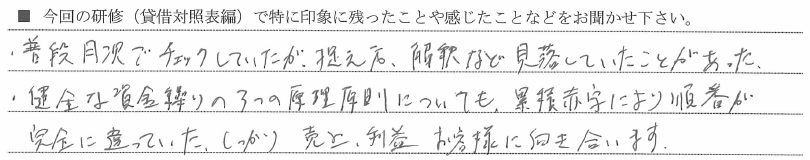 ■ 今回の研修（貸借対照表編）で特に印象に残ったことや感じたことなどをお聞かせ下さい。
・普段月次でチェックしていたが、捉え方、解釈など見落していたことがあった。
・健全な資金繰りの3つの原理原則についても、累積赤字により順番が
完全に違っていた。しっかり売上、利益 お客様に向き合います。